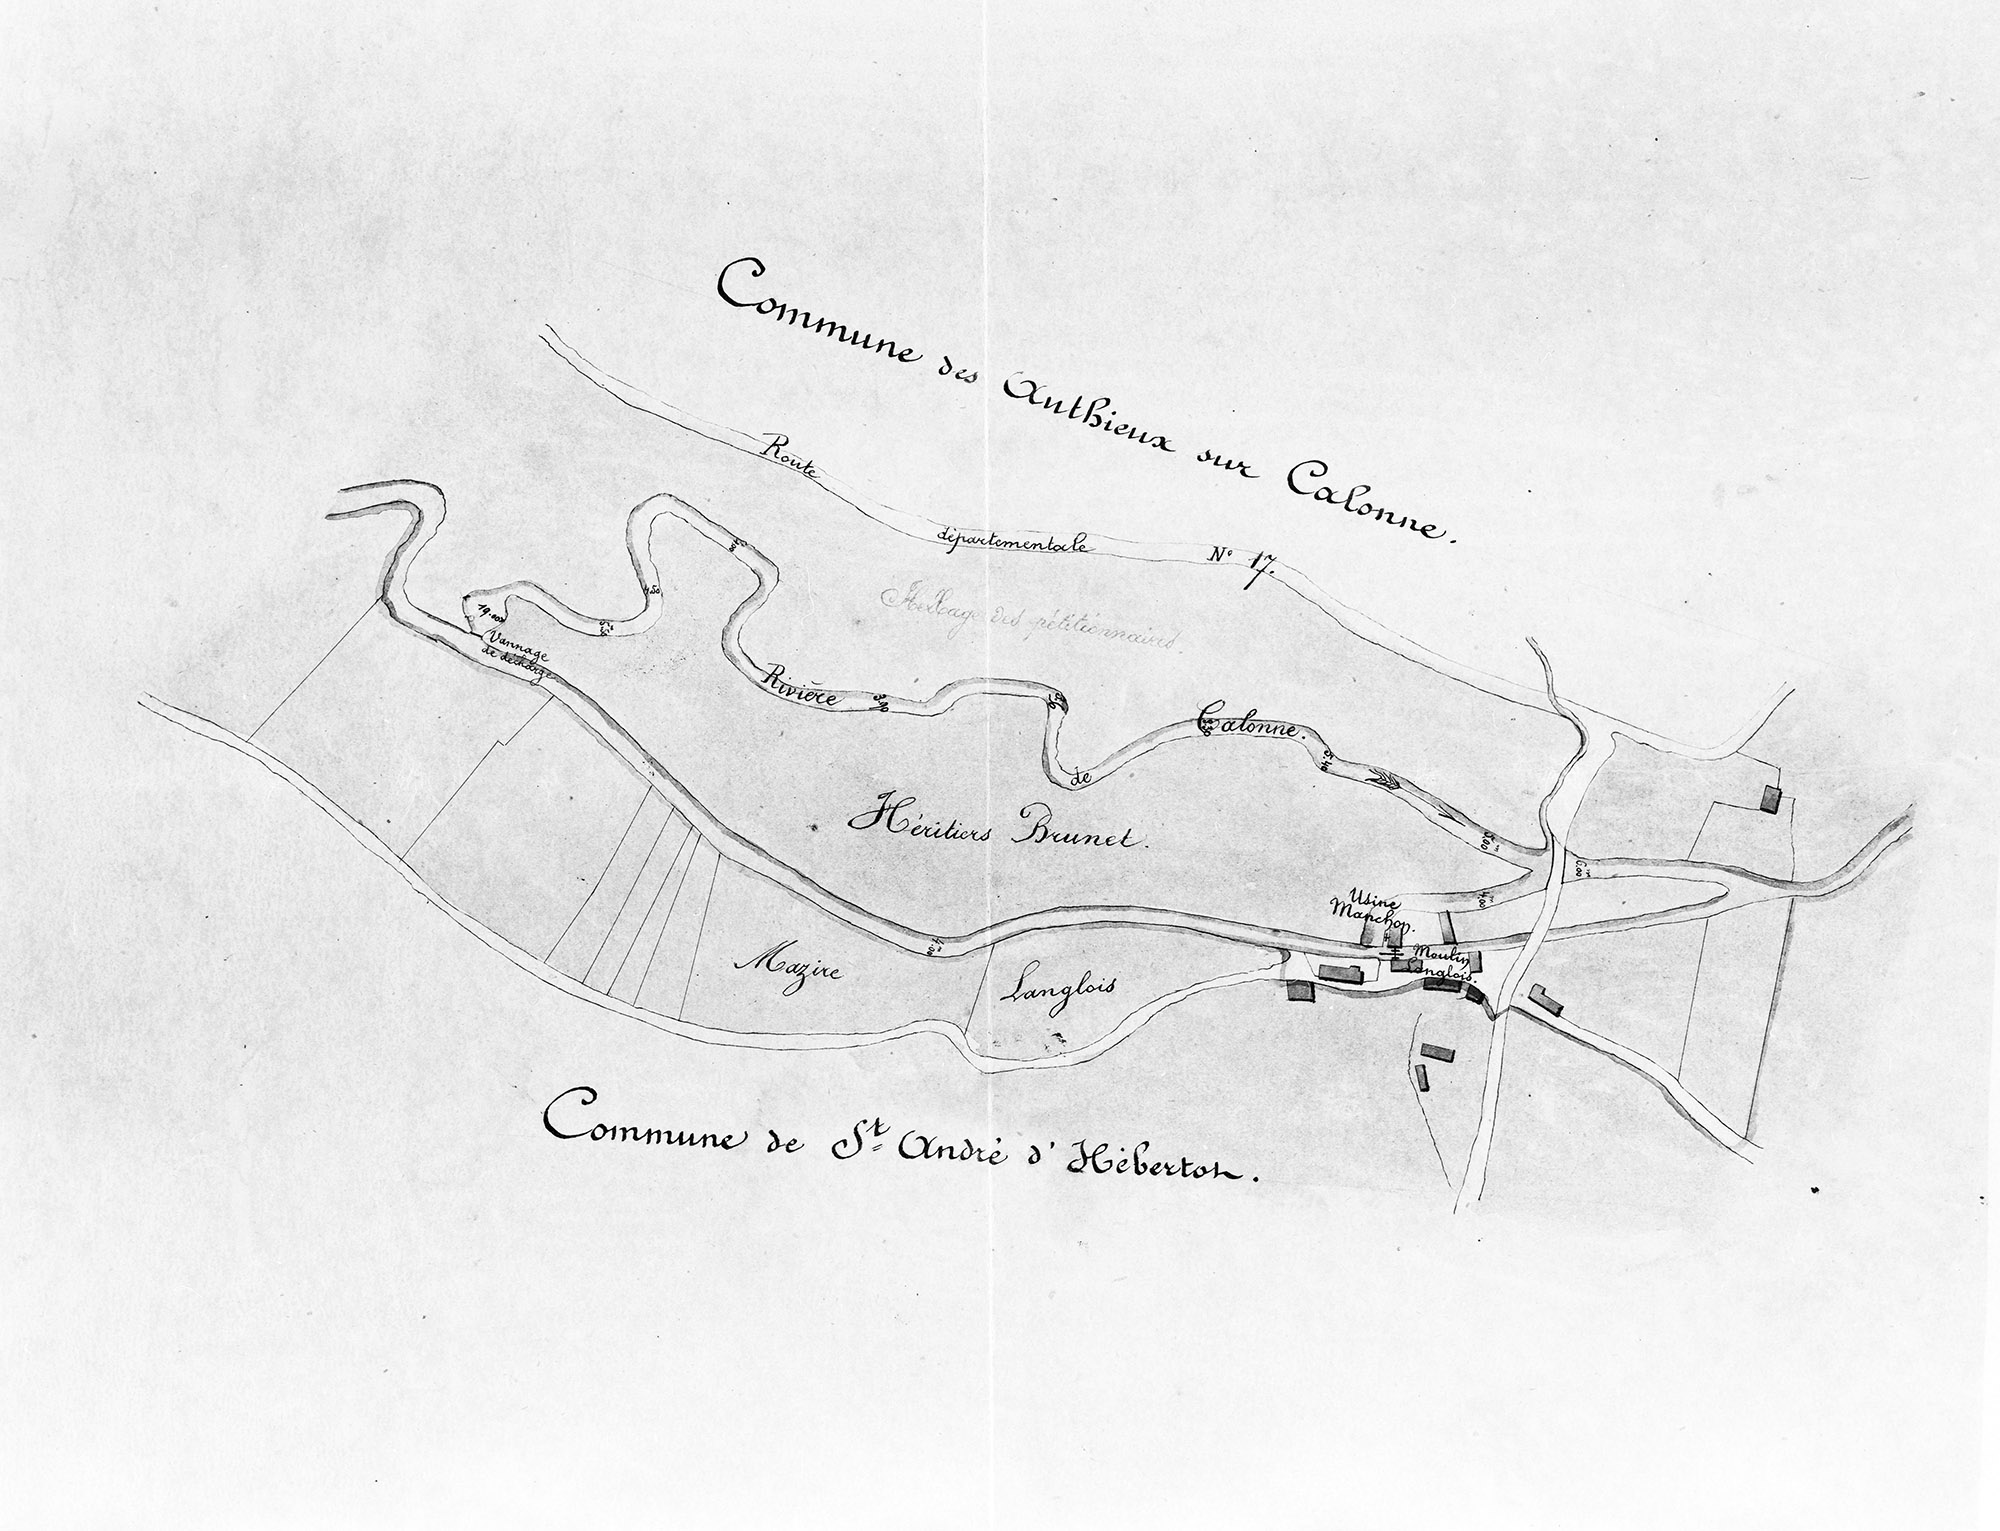 Commune des Authieux sur Calonne.
Route départementale N° 17.
Herbage des pétitionnaires.
19.00
Vannage
de décharge
4.50
Rivière de Calonne.
3.90
5.40
5.00
6.00
4.00
Héritiers Brunet.
Usine
Manchon.
Moulin
Langlois.
Mazire
Langlois
Commune de St André d'Héberton.